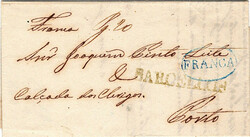 Franca
Snr Joaquim Pinto Leite
FRANCA
BARCELLOS
Calçada dos Clerigos
Porto